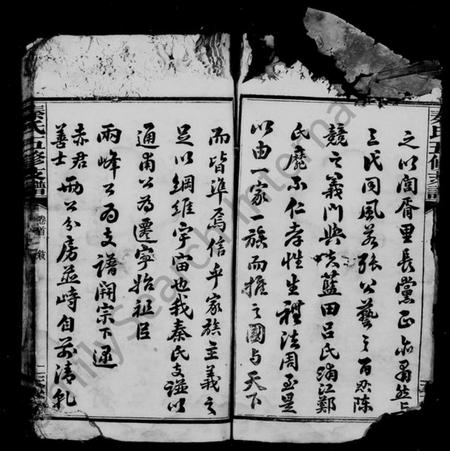 秦氏五修支譜
之以閭胥里長黨正亦
三代同風若張公藝之百忍陳
競之義門與夫藍田呂氏浦江鄭
氏靡不仁孝性生禮法周至是
以由一家一族而推之國与天下
而皆準焉信乎家族主義之
足以綱維宇宙也我秦氏支譜以
通甫公為遷寧始祖臣
兩峰公為支譜開宗下逮
赤君
善士
兩公分房並峙自前清乳
秦氏五修支譜
卷首
FamilySearch International